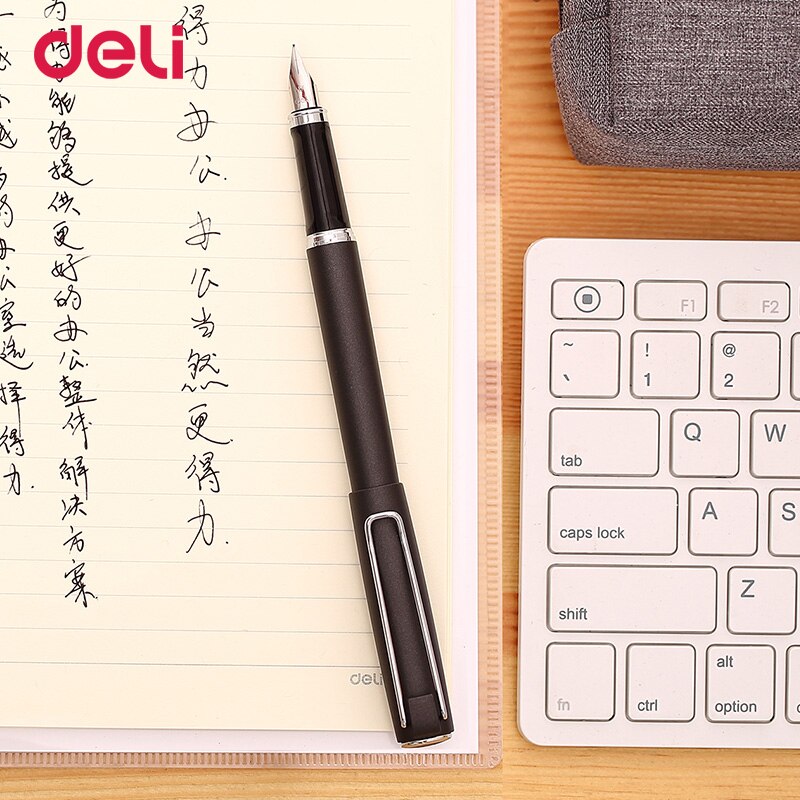 deli
得力办公.办公当然更得力.
为得力能够提供更好的办公整体解决方案.
办公室选择得力.
deli
F1
F2
~
!
1
@
2
tab
Q
W
caps lock
A
S
shift
Z
fn
ctrl
alt
option